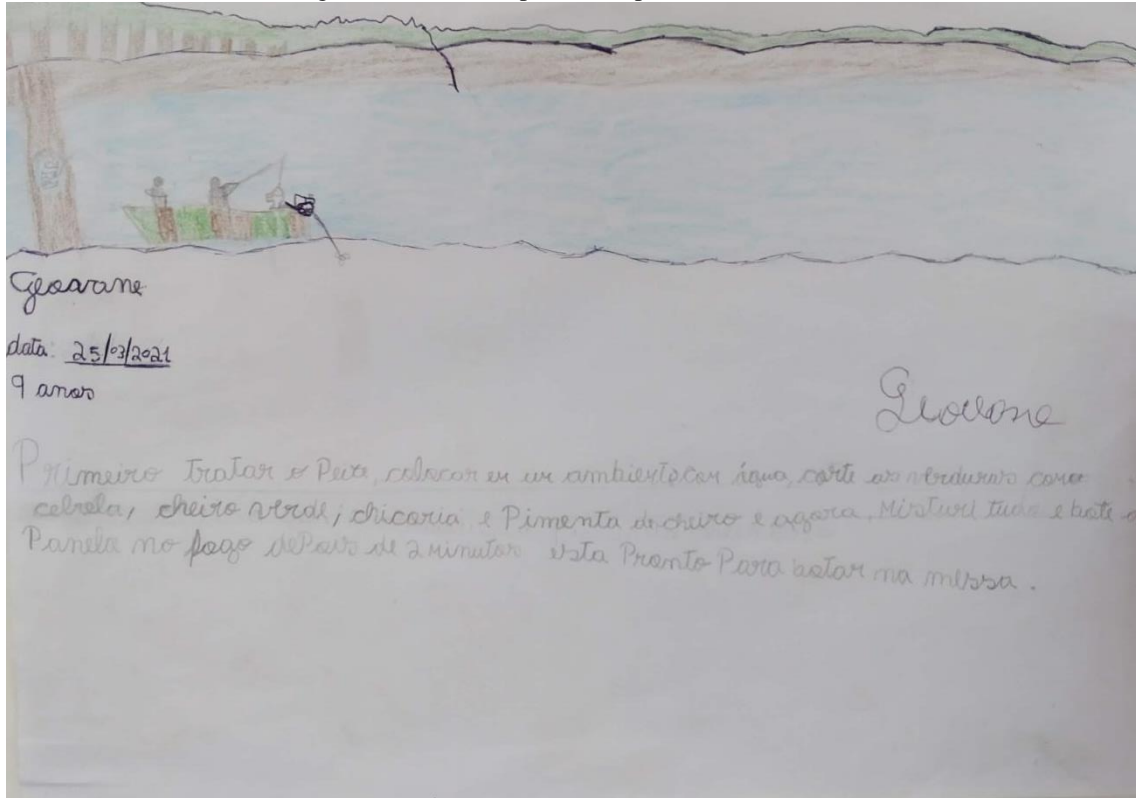 Geovane
data: 25/03/2021
9 anos
Geovane
Primeiro tratar o Peixe, colocar en un ambiente con água, corte as verduras como
cebrela, cheiro verde, chicoria, e Pimenta de cheiro e agora, Misturi tudo e bote a
Panela no fogo dePois de 2 minutos esta Pronto Para botar na messa.